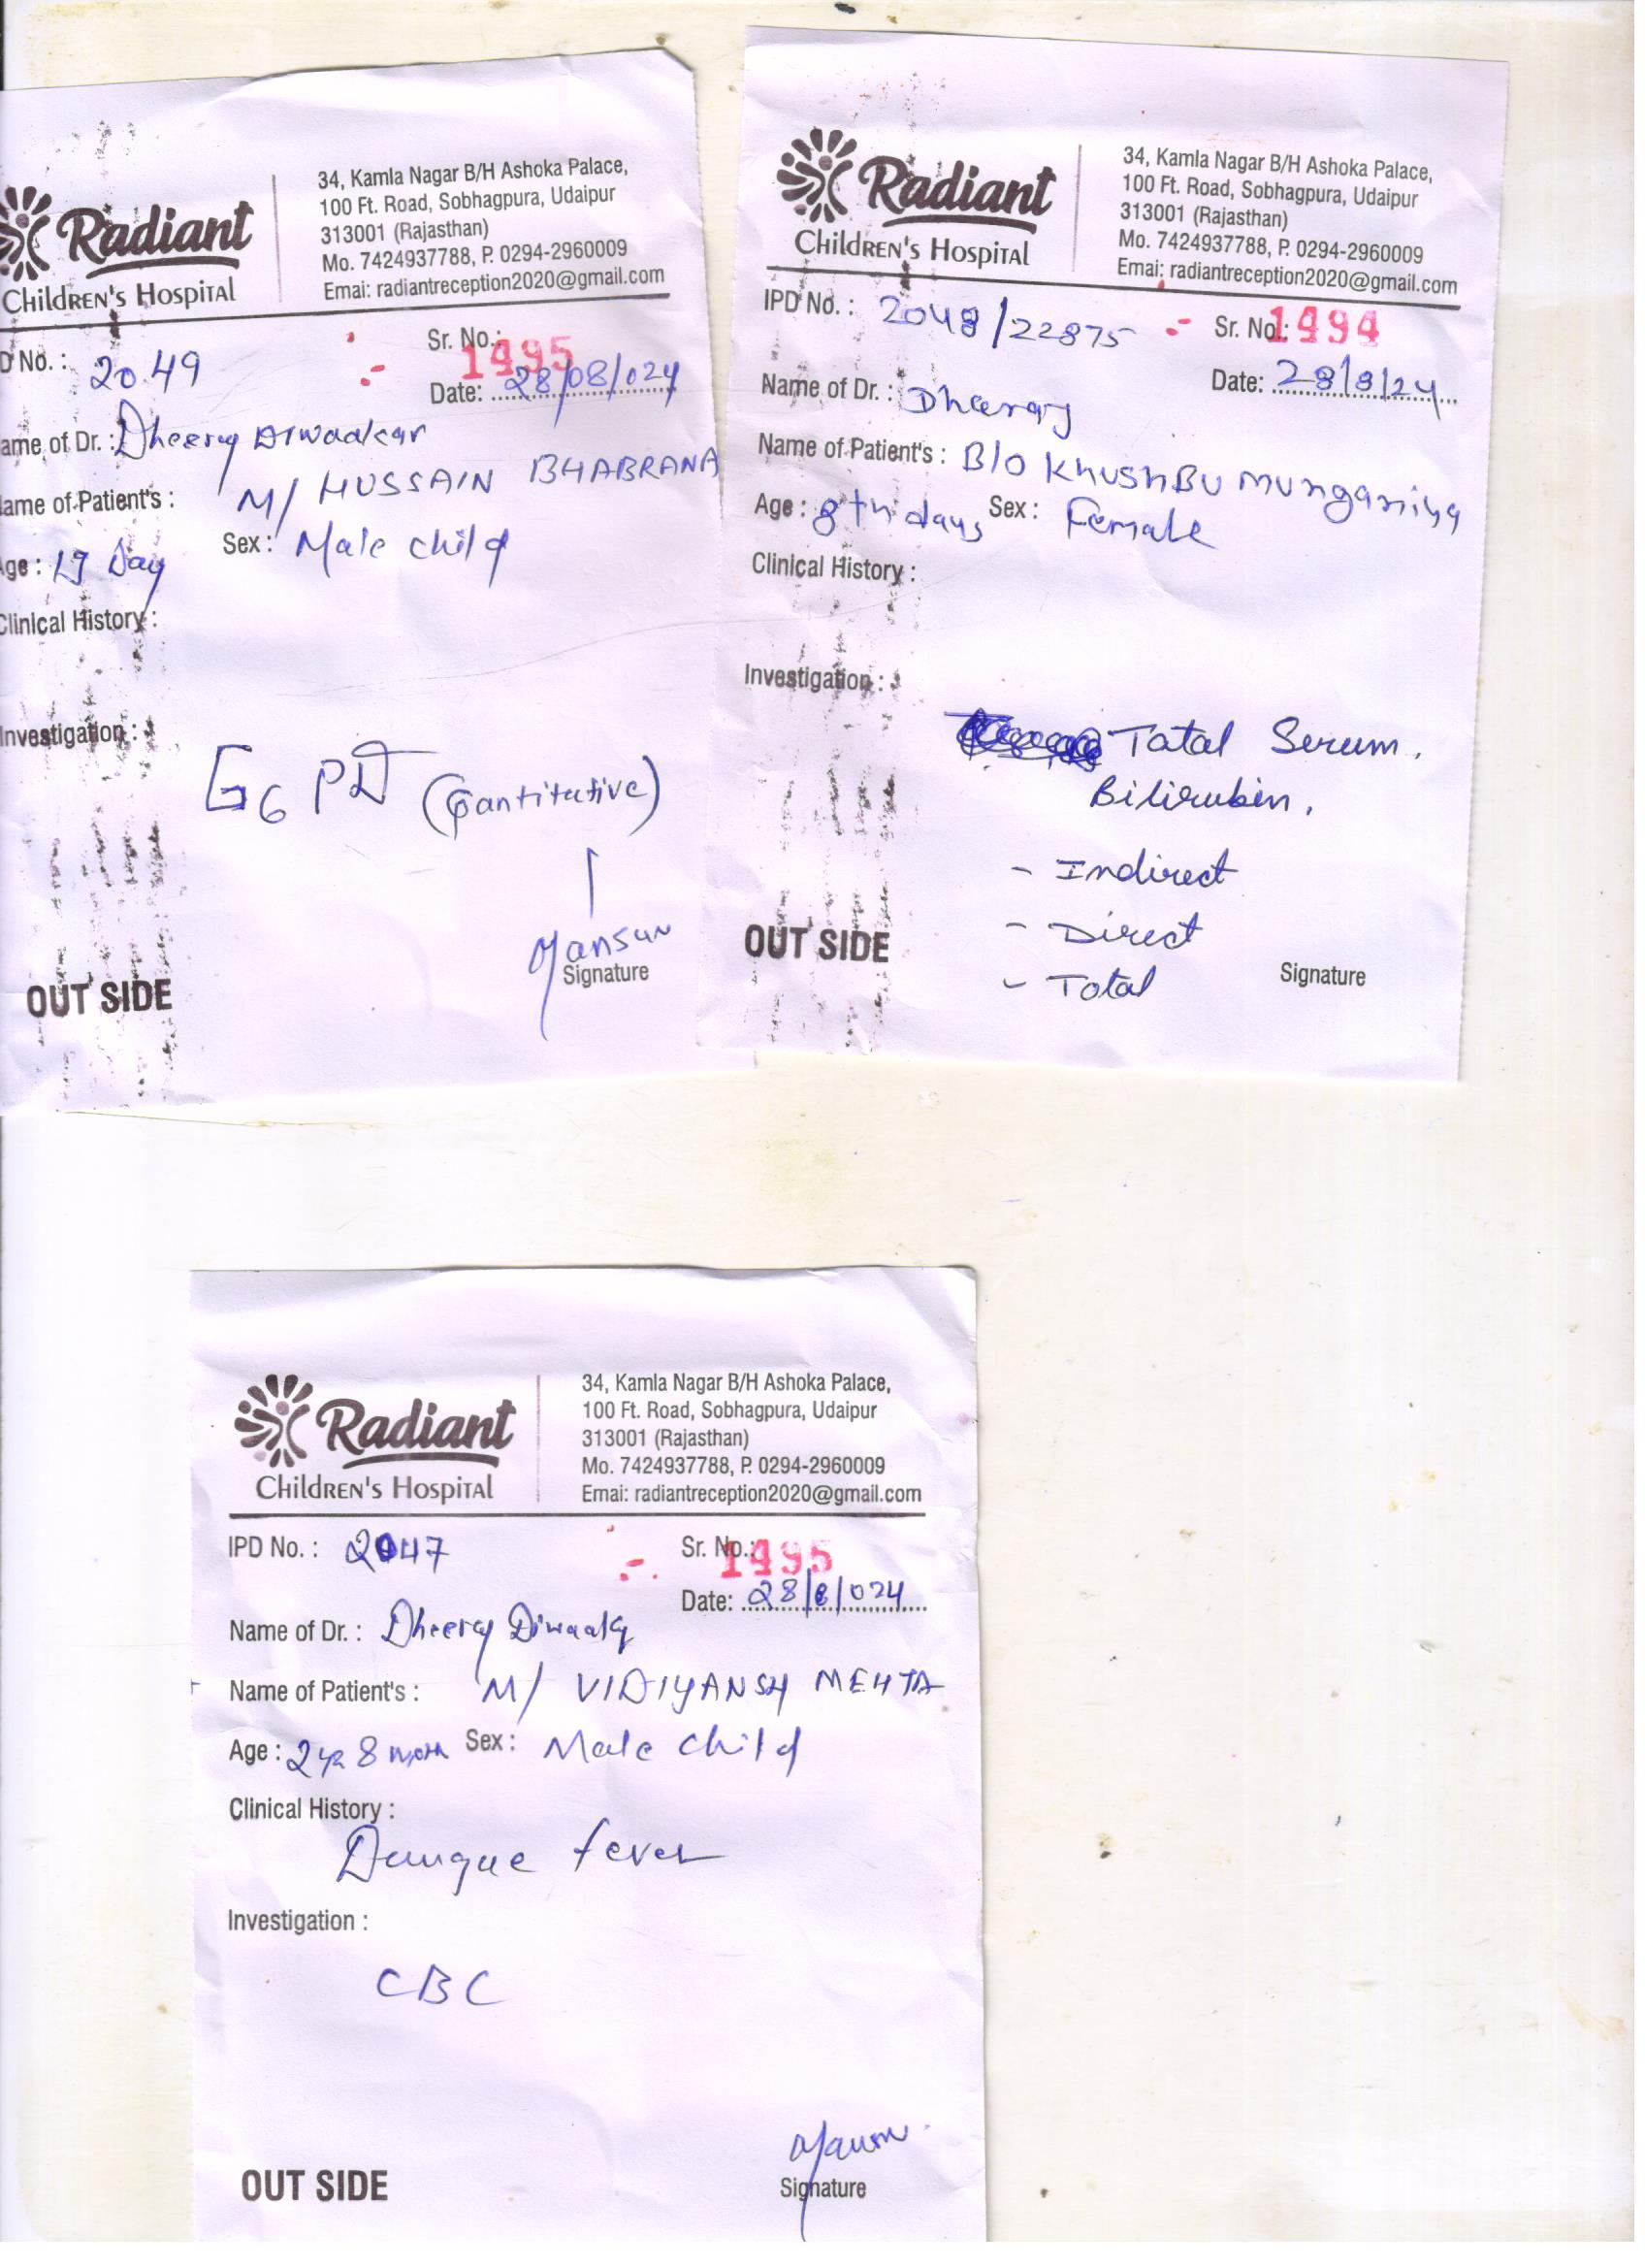 Radiant
Children's Hospital
34, Kamla Nagar B/H Ashoka Palace,
100 Ft. Road, Sobhagpura, Udaipur
313001 (Rajasthan)
Mo. 7424937788, P. 0294-2960009
Emai: radiantreception2020@gmail.com
D No. : 2049
Sr. No.: 1495
Date: 28/08/024
ame of Dr. : Dheeraj
ame of Patient's : M/ HUSSAIN BHABRANA
ge : 19 Day Sex : Male child
Clinical History :
Investigation :
G6 PD (Qantitative)
Signature
OUT SIDE
Radiant
Children's Hospital
34, Kamla Nagar B/H Ashoka Palace,
100 Ft. Road, Sobhagpura, Udaipur
313001 (Rajasthan)
Mo. 7424937788, P. 0294-2960009
Emai: radiantreception2020@gmail.com
IPD No. : 2048/22875
Sr. No.: 1494
Date: 28/8/24
Name of Dr. :
Name of Patient's : B/o KhushBu Munganiya
Age : 8th days Sex : Female
Clinical History :
Investigation :
Tatal Serum.
Bilirubin.
- Indirect
- Direct
- Total
OUT SIDE
Signature
Radiant
Children's Hospital
34, Kamla Nagar B/H Ashoka Palace,
100 Ft. Road, Sobhagpura, Udaipur
313001 (Rajasthan)
Mo. 7424937788, P. 0294-2960009
Emai: radiantreception2020@gmail.com
IPD No. : 2047
Sr. No.: 1495
Date: 28/8/024
Name of Dr. : Dheeraj
Name of Patient's : M/ VIDIYANSH MEHTA
Age : 2 yr 8 Sex : Male child
Clinical History :
Dengue fever
Investigation :
CBC
OUT SIDE
Signature